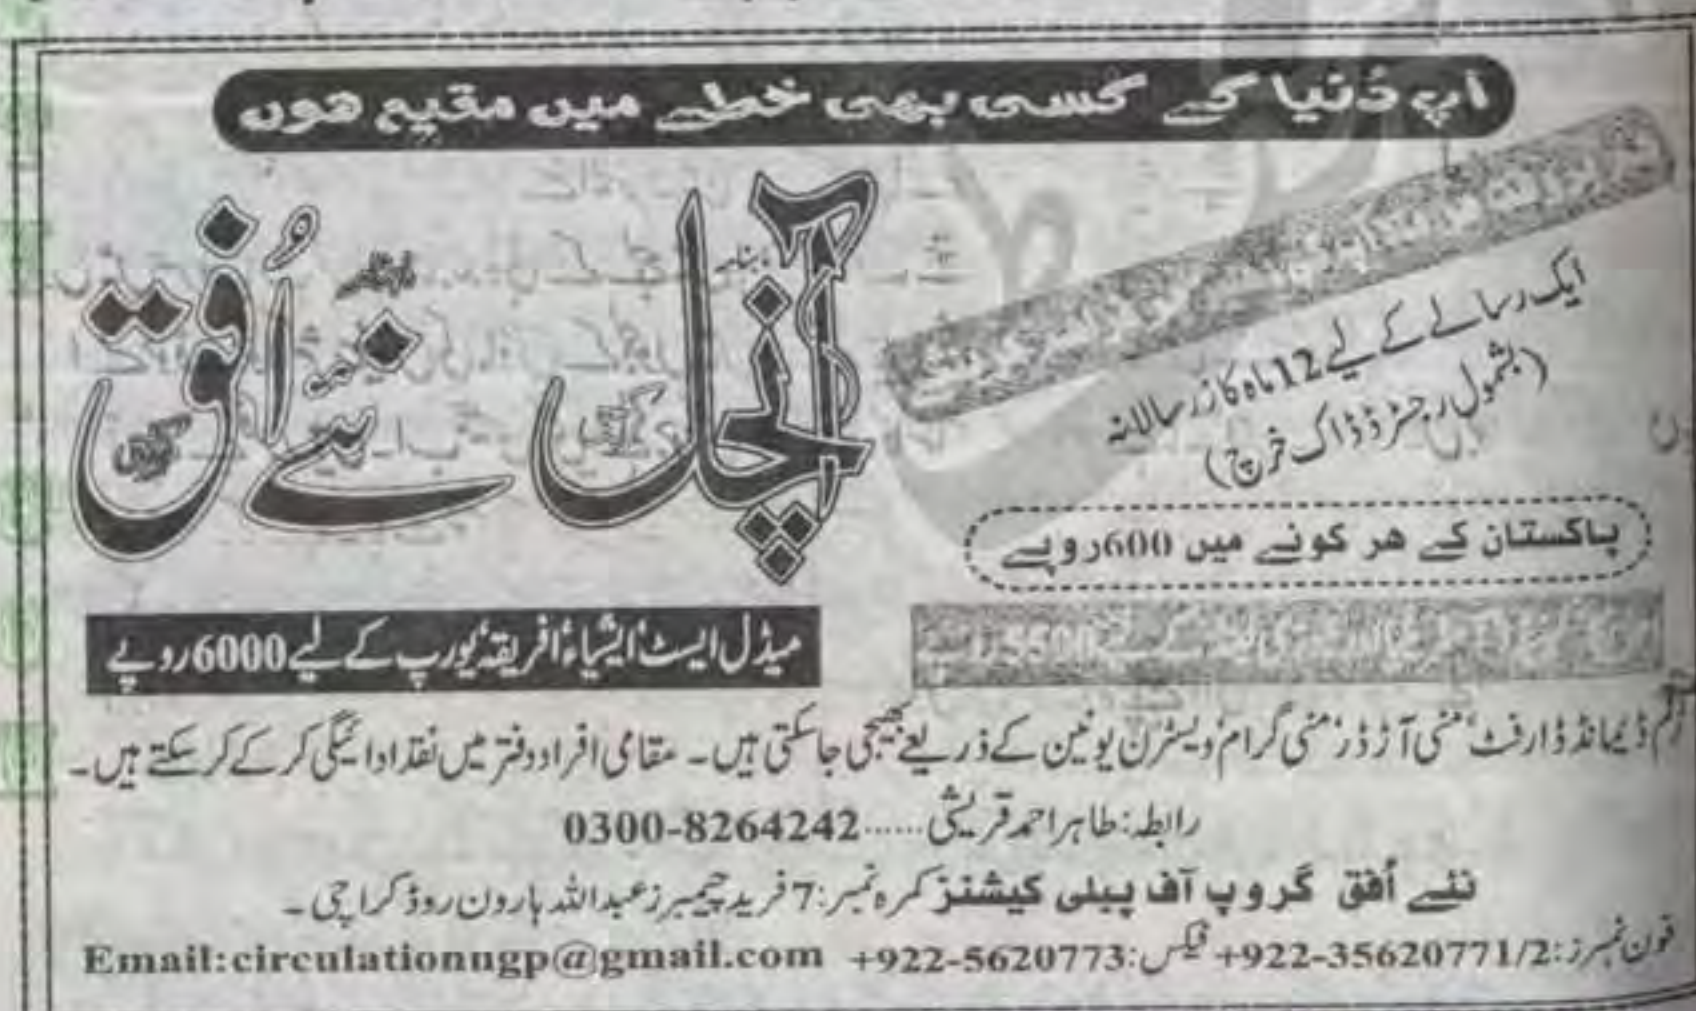 آپ دُنیا کے کسی بھی خطے میں مقیم ھوں
ماہنامہ آنچل کراچی ماہنامہ نئے اُفق کراچی
ایک رسالے کے لیے 12 ماہ کا زر سالانہ
(بشمول رجسٹرڈ ڈاک خرچ)
پاکستان کے ھر کونے میں 600 روپے
کے لیے 5500 روپے
میڈل ایسٹ' ایشیاء' افریقہ' یورپ کے لیے 6000 روپے
رقم ڈیمانڈ ڈارفٹ' منی آرڈر' منی گرام' ویسٹرن یونین کے ذریعے بھیجی جاسکتی ہیں۔ مقامی افراد دفتر میں نقد ادائیگی کرکے کرسکتے ہیں۔
رابطہ: طاہر احمد قریشی ......0300-8264242
نئے اُفق گروپ آف پبلی کیشنز کمرہ نمبر: 7 فرید چیمبرز عبداللہ ہارون روڈ کراچی ۔
فون نمبرز: +922-35620771/2 فیکس: +922-5620773 Email:circulationngp@gmail.com